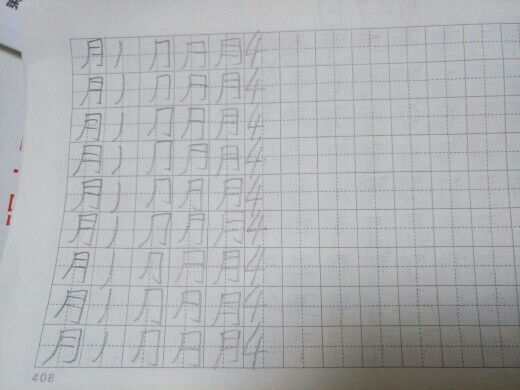 月丿⺆月月4
月丿⺆月月4
月丿⺆月月4
月丿⺆月月4
月丿⺆月月4
月丿⺆月月4
月丿⺆月月4
月丿⺆月月4
月丿⺆月月4
408